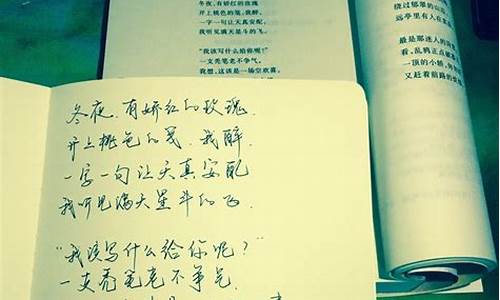 冬夜,有娇红的玫瑰
开上桃色的笺,我醉,
一字一句让天真安配
我听见满天星斗的飞
"我该写什么给你呢?"
一支秃笔老不争气,
冬夜,有娇红的玫瑰
开上桃色的笺,我醉,
一字一句让天真安配,
我听见满天星斗的飞。
"我该写什么给你呢?"
一支秃笔老不争气,
我想,这该是一场空欢喜,
绕过郁翠的
远亭里有人在
最是那迷人的
看,乱鸦正点
一顶的小轿,
又赶着前路的